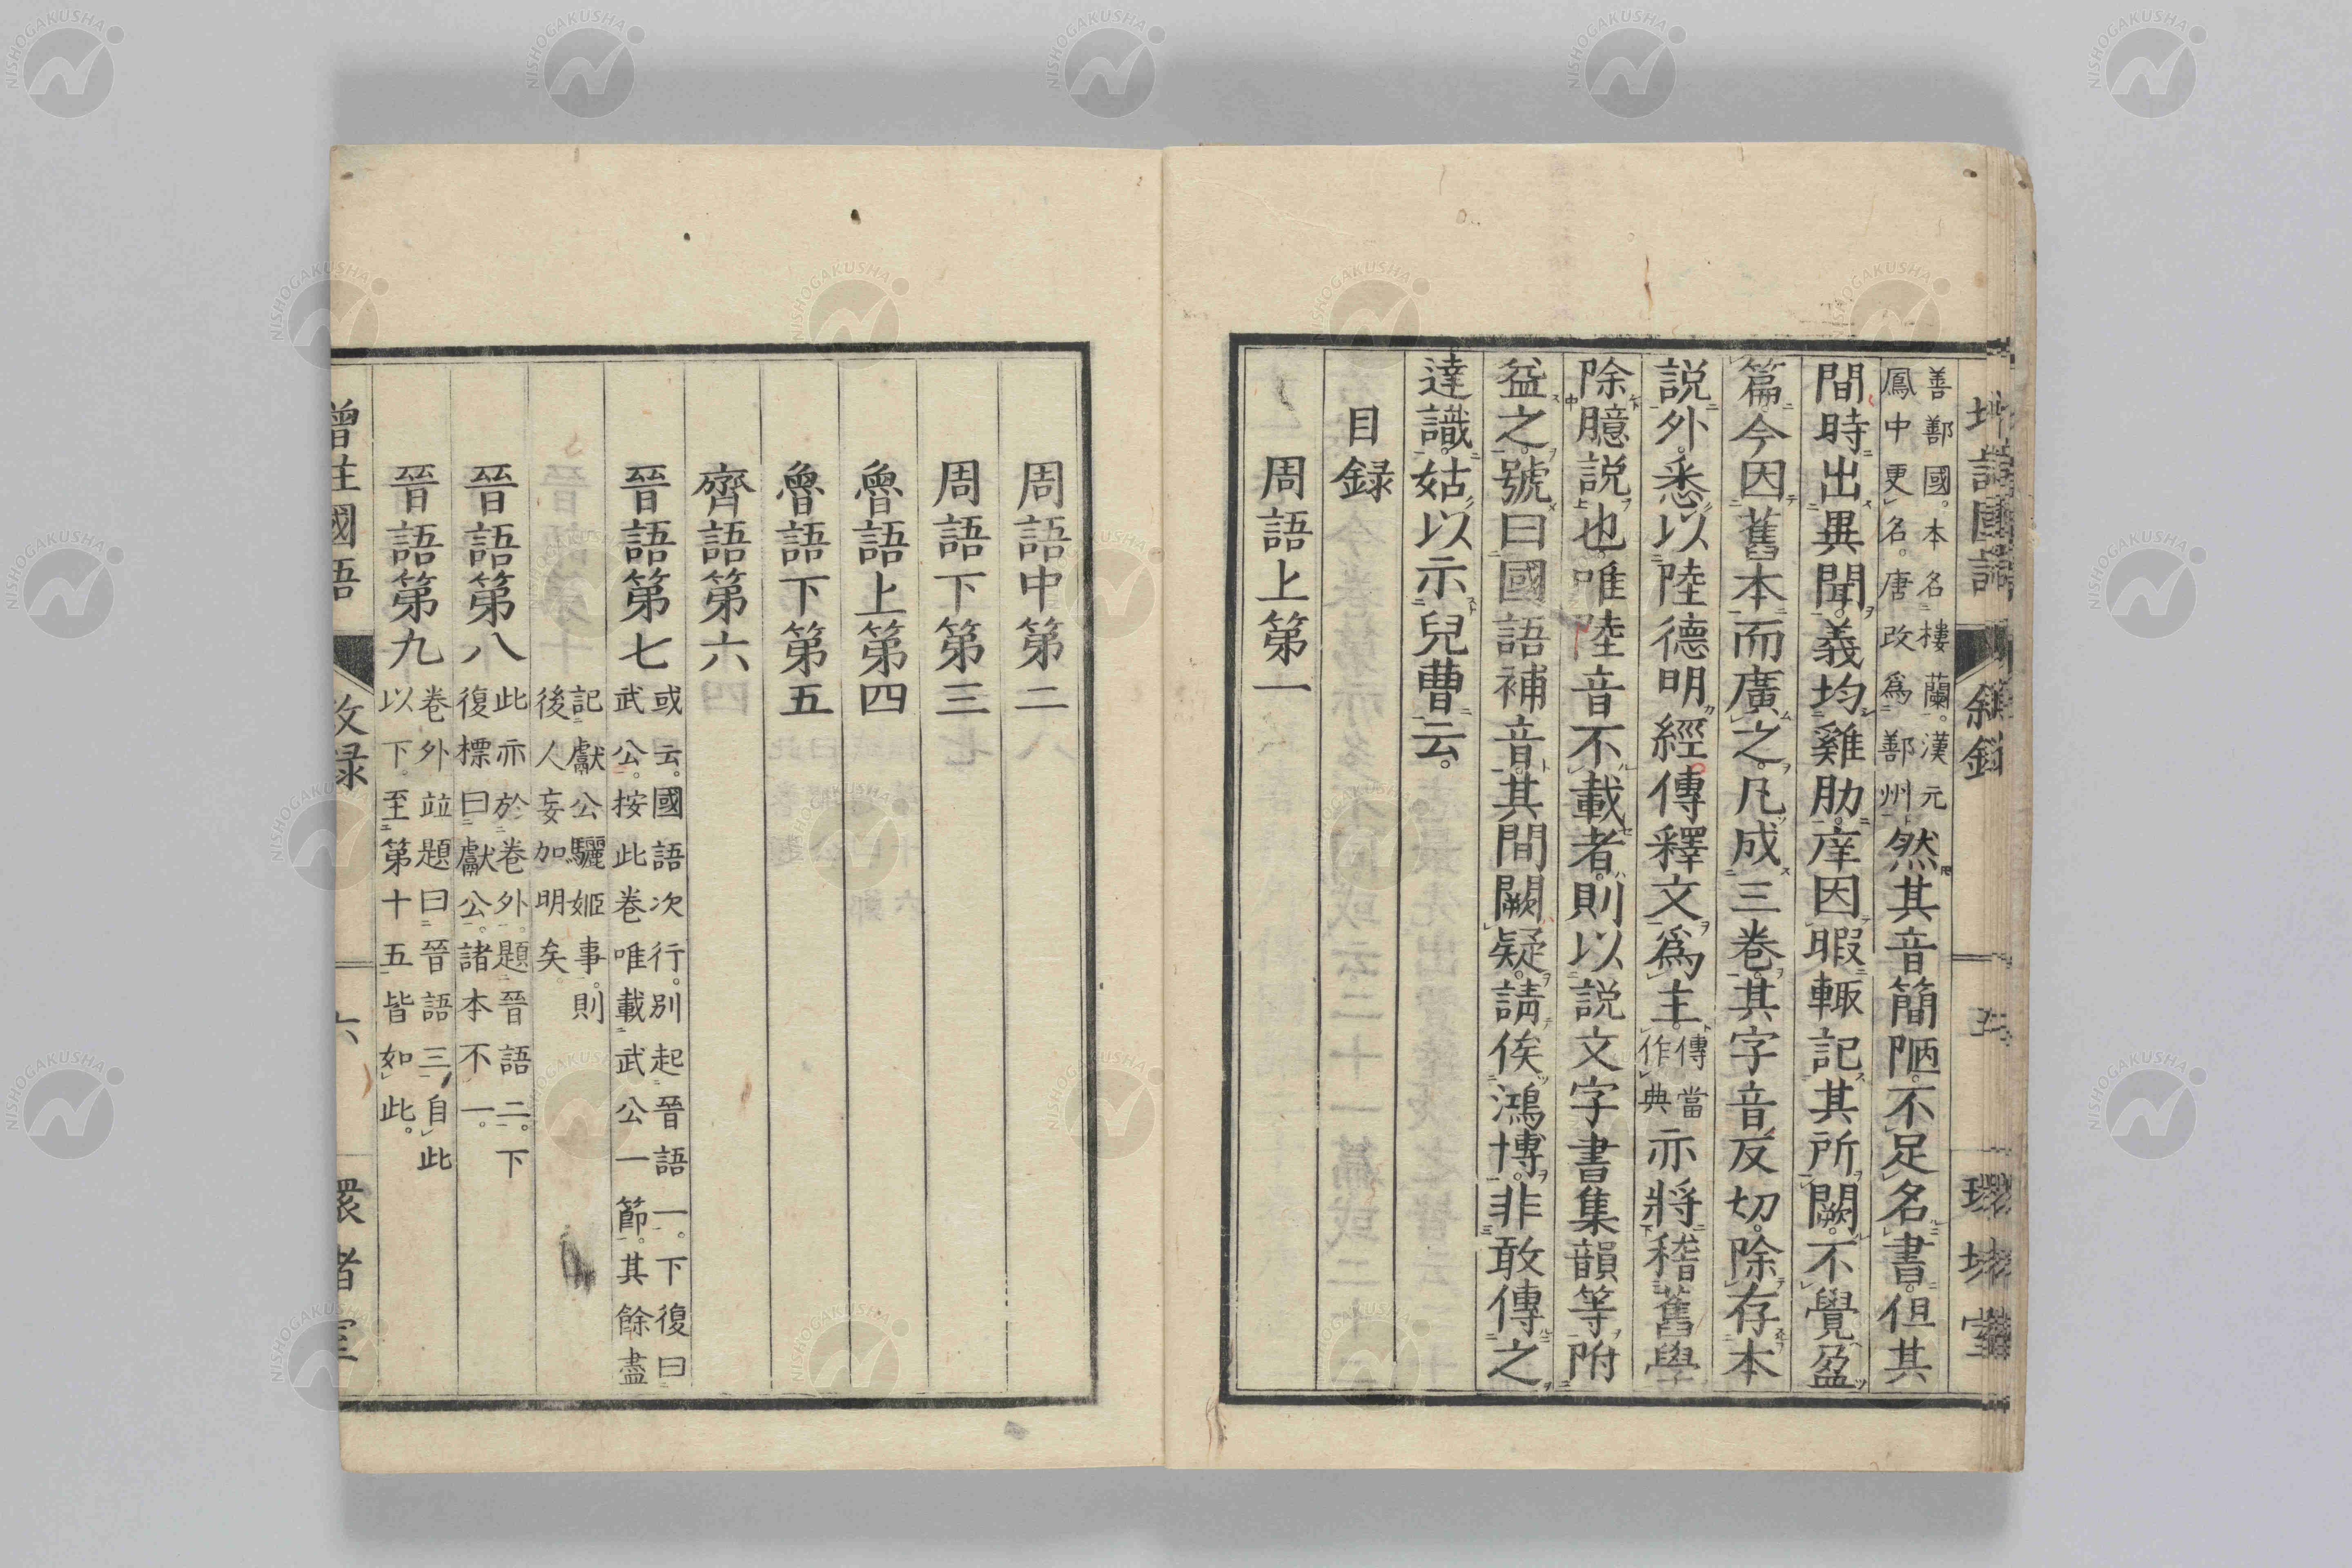 善鄯國。本名樓蘭。漢元
鳳中更名。唐改爲鄯州
然其音簡陋。不足名書。但其
間時出異聞。義均雞肋。庠因暇輙記其所闕。不覺盈
篇。今因舊本而廣之。凡成三卷。其字音反切。除存本
説外。悉以陸德明經傳釋文爲主。
傳當
作典
亦將稽舊學
除臆説也。唯陸音不載者。則以説文字書集韻等附
益之。號曰國語補音。其間闕疑。請俟鴻博。非敢傳之
達識。姑以示兒曹云。
目録
周語上第一
周語中第二
周語下第三
魯語上第四
魯語下第五
齊語第六
晉語第七
或云。國語次行。別起晉語一。下復曰
武公。按此卷唯載武公一節。其餘盡
記獻公驪姬事。則
後人妄加明矣。
晉語第八
此亦於卷外。題晉語二。下
復標曰獻公。諸本不一。
晉語第九
卷外竝題曰晉語三。自此
以下。至第十五皆如此。
增註國語
六
NISHOGAKUSHA